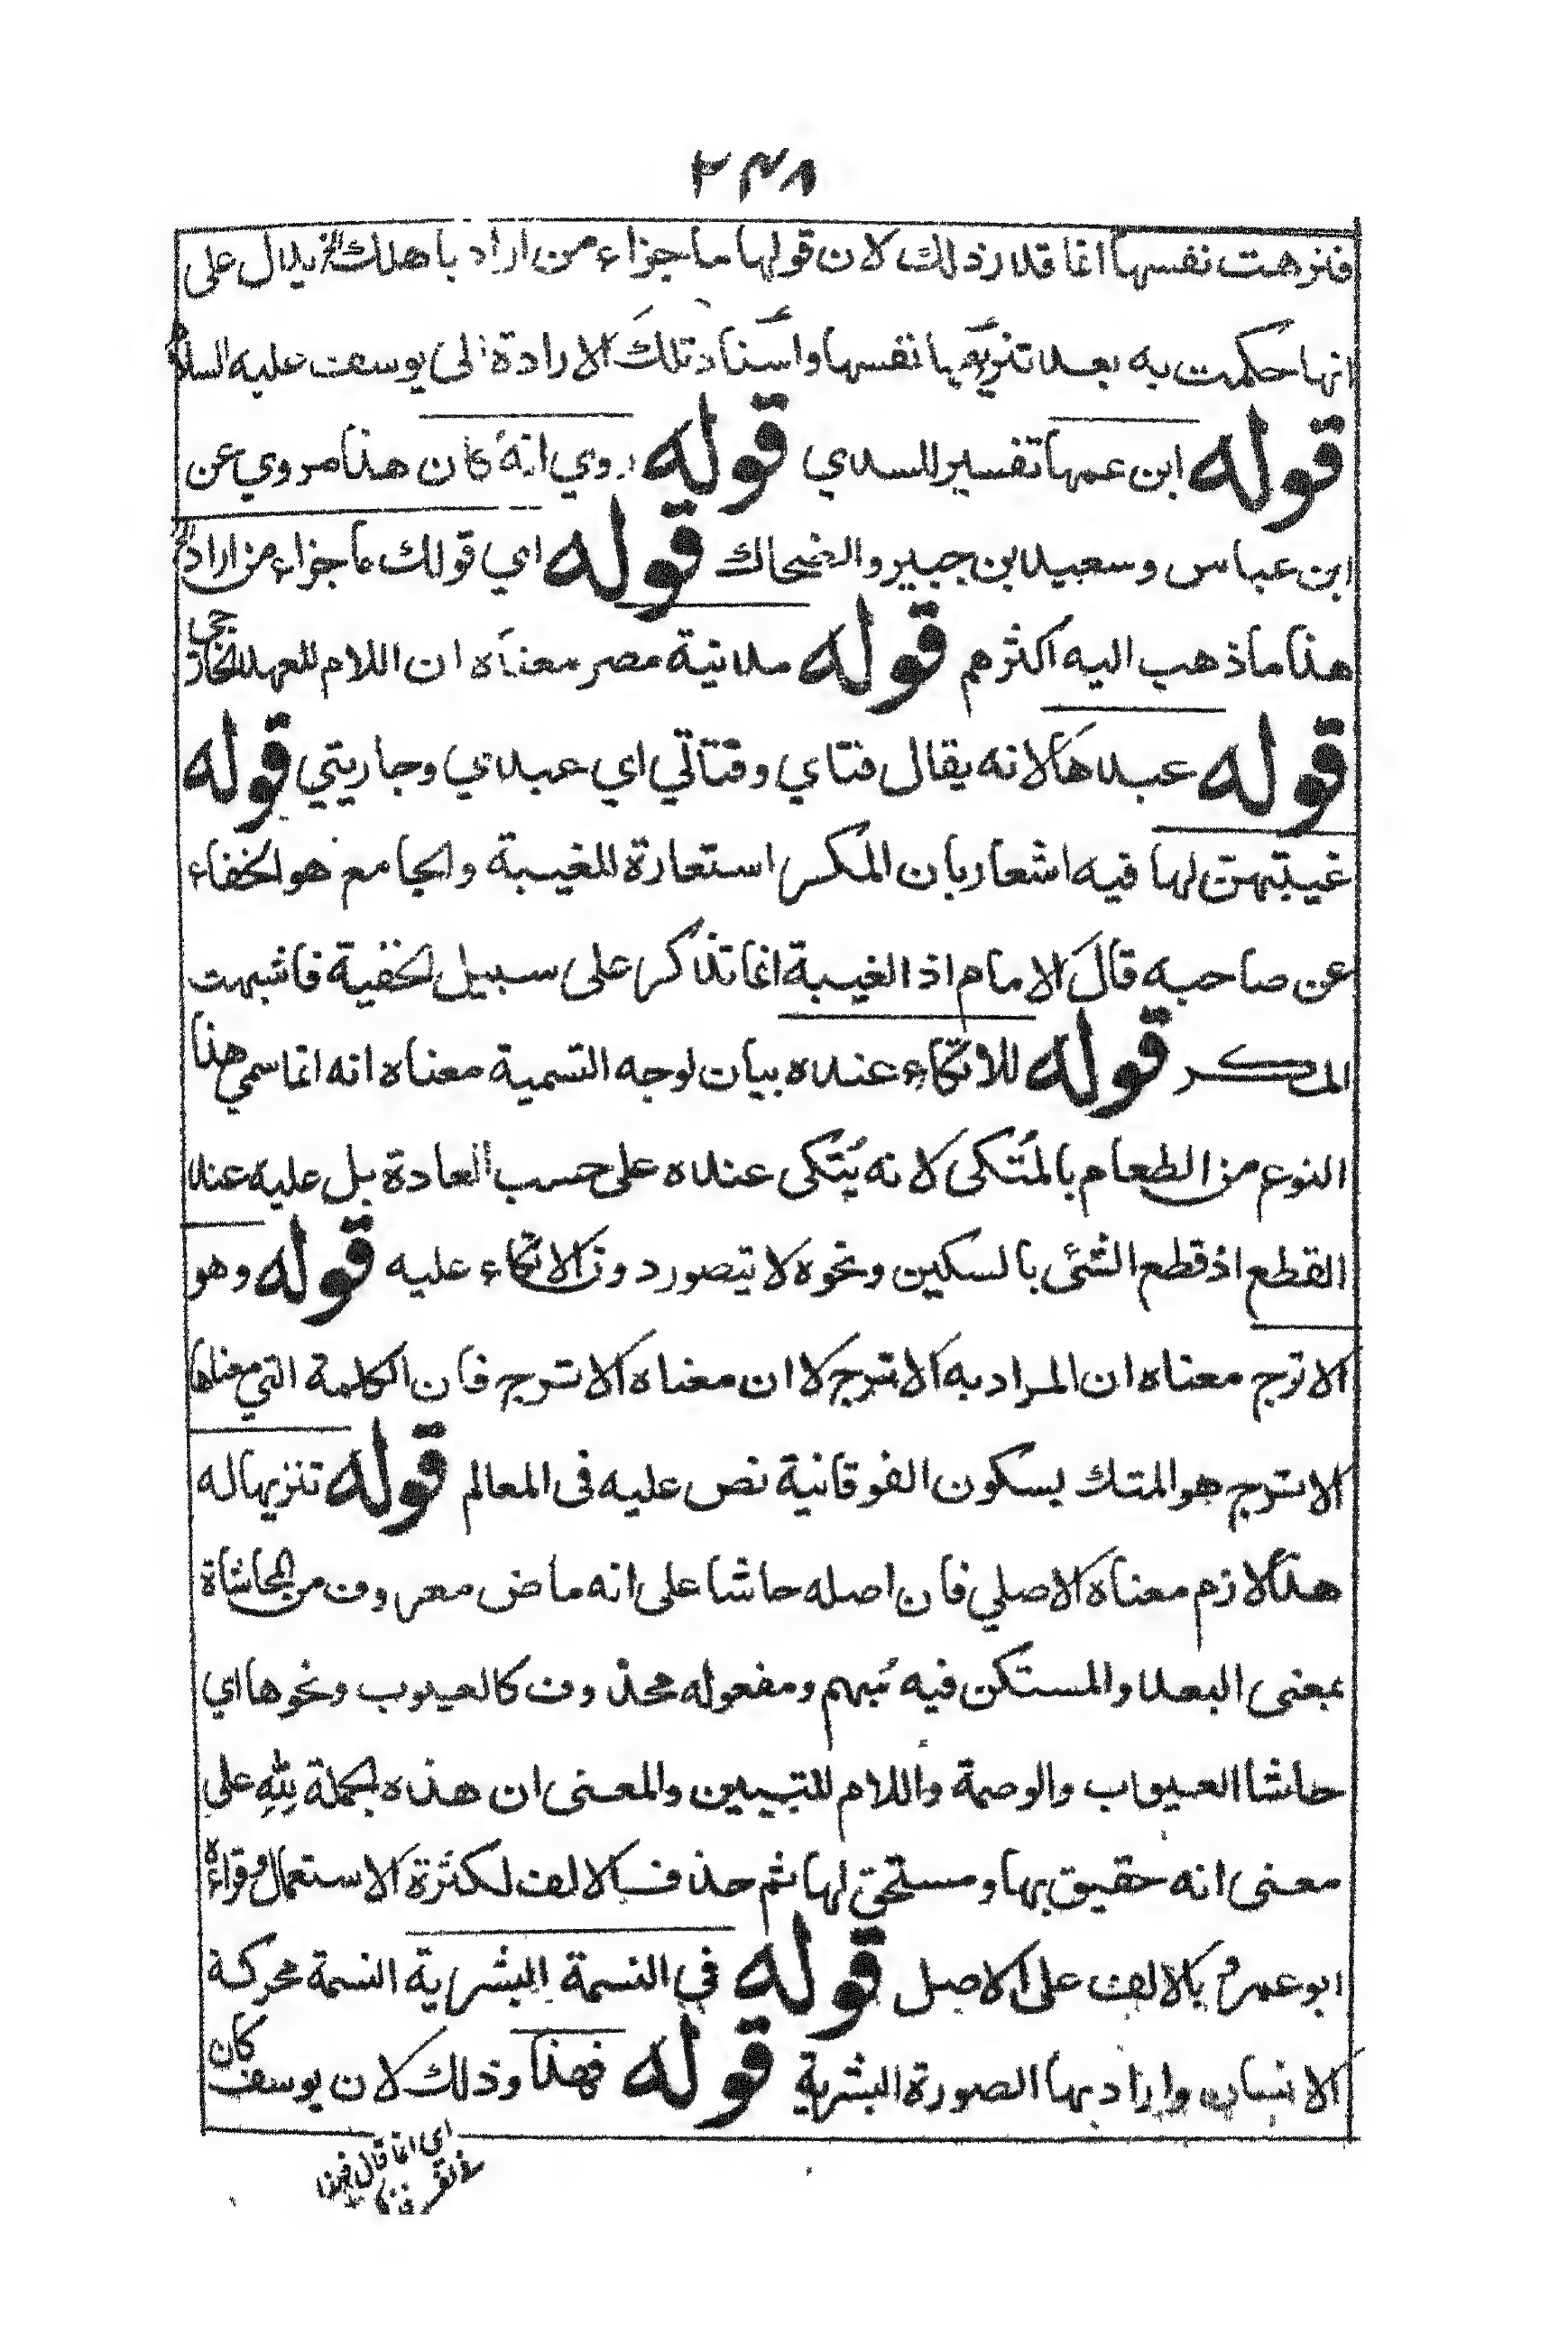 ٢٣٨
فنزهت نفسها انما قدر ذلك لان قولها ما جزاء من اراد باهلك الخ يدل على
انها حكمت به بعد تنزيهها نفسها واسناد تلك الارادة الى يوسف عليه السلام
قوله ابن عمها تفسير للسدي قوله روي انه كان هذا مروي عن
ابن عباس وسعيد بن جبير والضحاك قوله اي قولك ما جزاء من اراد الخ
هذا ما ذهب اليه اكثرهم قوله مدينة مصر معناه ان اللام للعهد الخارجي
قوله عبدها لانه يقال فتاي وفتاتي اي عبدي وجاريتي قوله
غيبتهن لها فيه اشعار بان المكر استعارة للغيبة والجامع هو الخفاء
عن صاحبه قال الامام اذ الغيبة انما تذكر على سبيل الخفية فاشبهت
المكر قوله للاتكاء عنده بيان لوجه التسمية معناه انه انما سمي هذا
النوع من الطعام بالمتكى لانه يُتكى عنده على حسب العادة بل عليه عند
القطع اذ قطع الشئ بالسكين ونحوه لا يتصور دون الاتكاء عليه قوله وهو
الاترج معناه ان المراد به الاترج لا ان معناه الاترج فان الكلمة التي معناها
الاترج هو المتك بسكون الفوقانية نص عليه فى المعالم قوله تنزيها له
هذا لازم معناه الاصلي فان اصله حاشا على انه ماض معروف من المحاشاة
بمعنى البعد والمستكن فيه مُبهم ومفعوله محذوف كالعيوب ونحوها اي
حاشا العيوب والوصمة واللام للتبيين والمعنى ان هذه الجملة لِلّٰهِ على
معنى انه حقيق بها ومستحق لها ثم حذف الالف لكثرة الاستعمال وقراءة
ابو عمرو بالالف على الاصل قوله في النسمة البشرية النسمة محركة
الانسان واراد بها الصورة البشرية قوله فهذا وذلك لان يوسف كان
اي انما قال فهذا